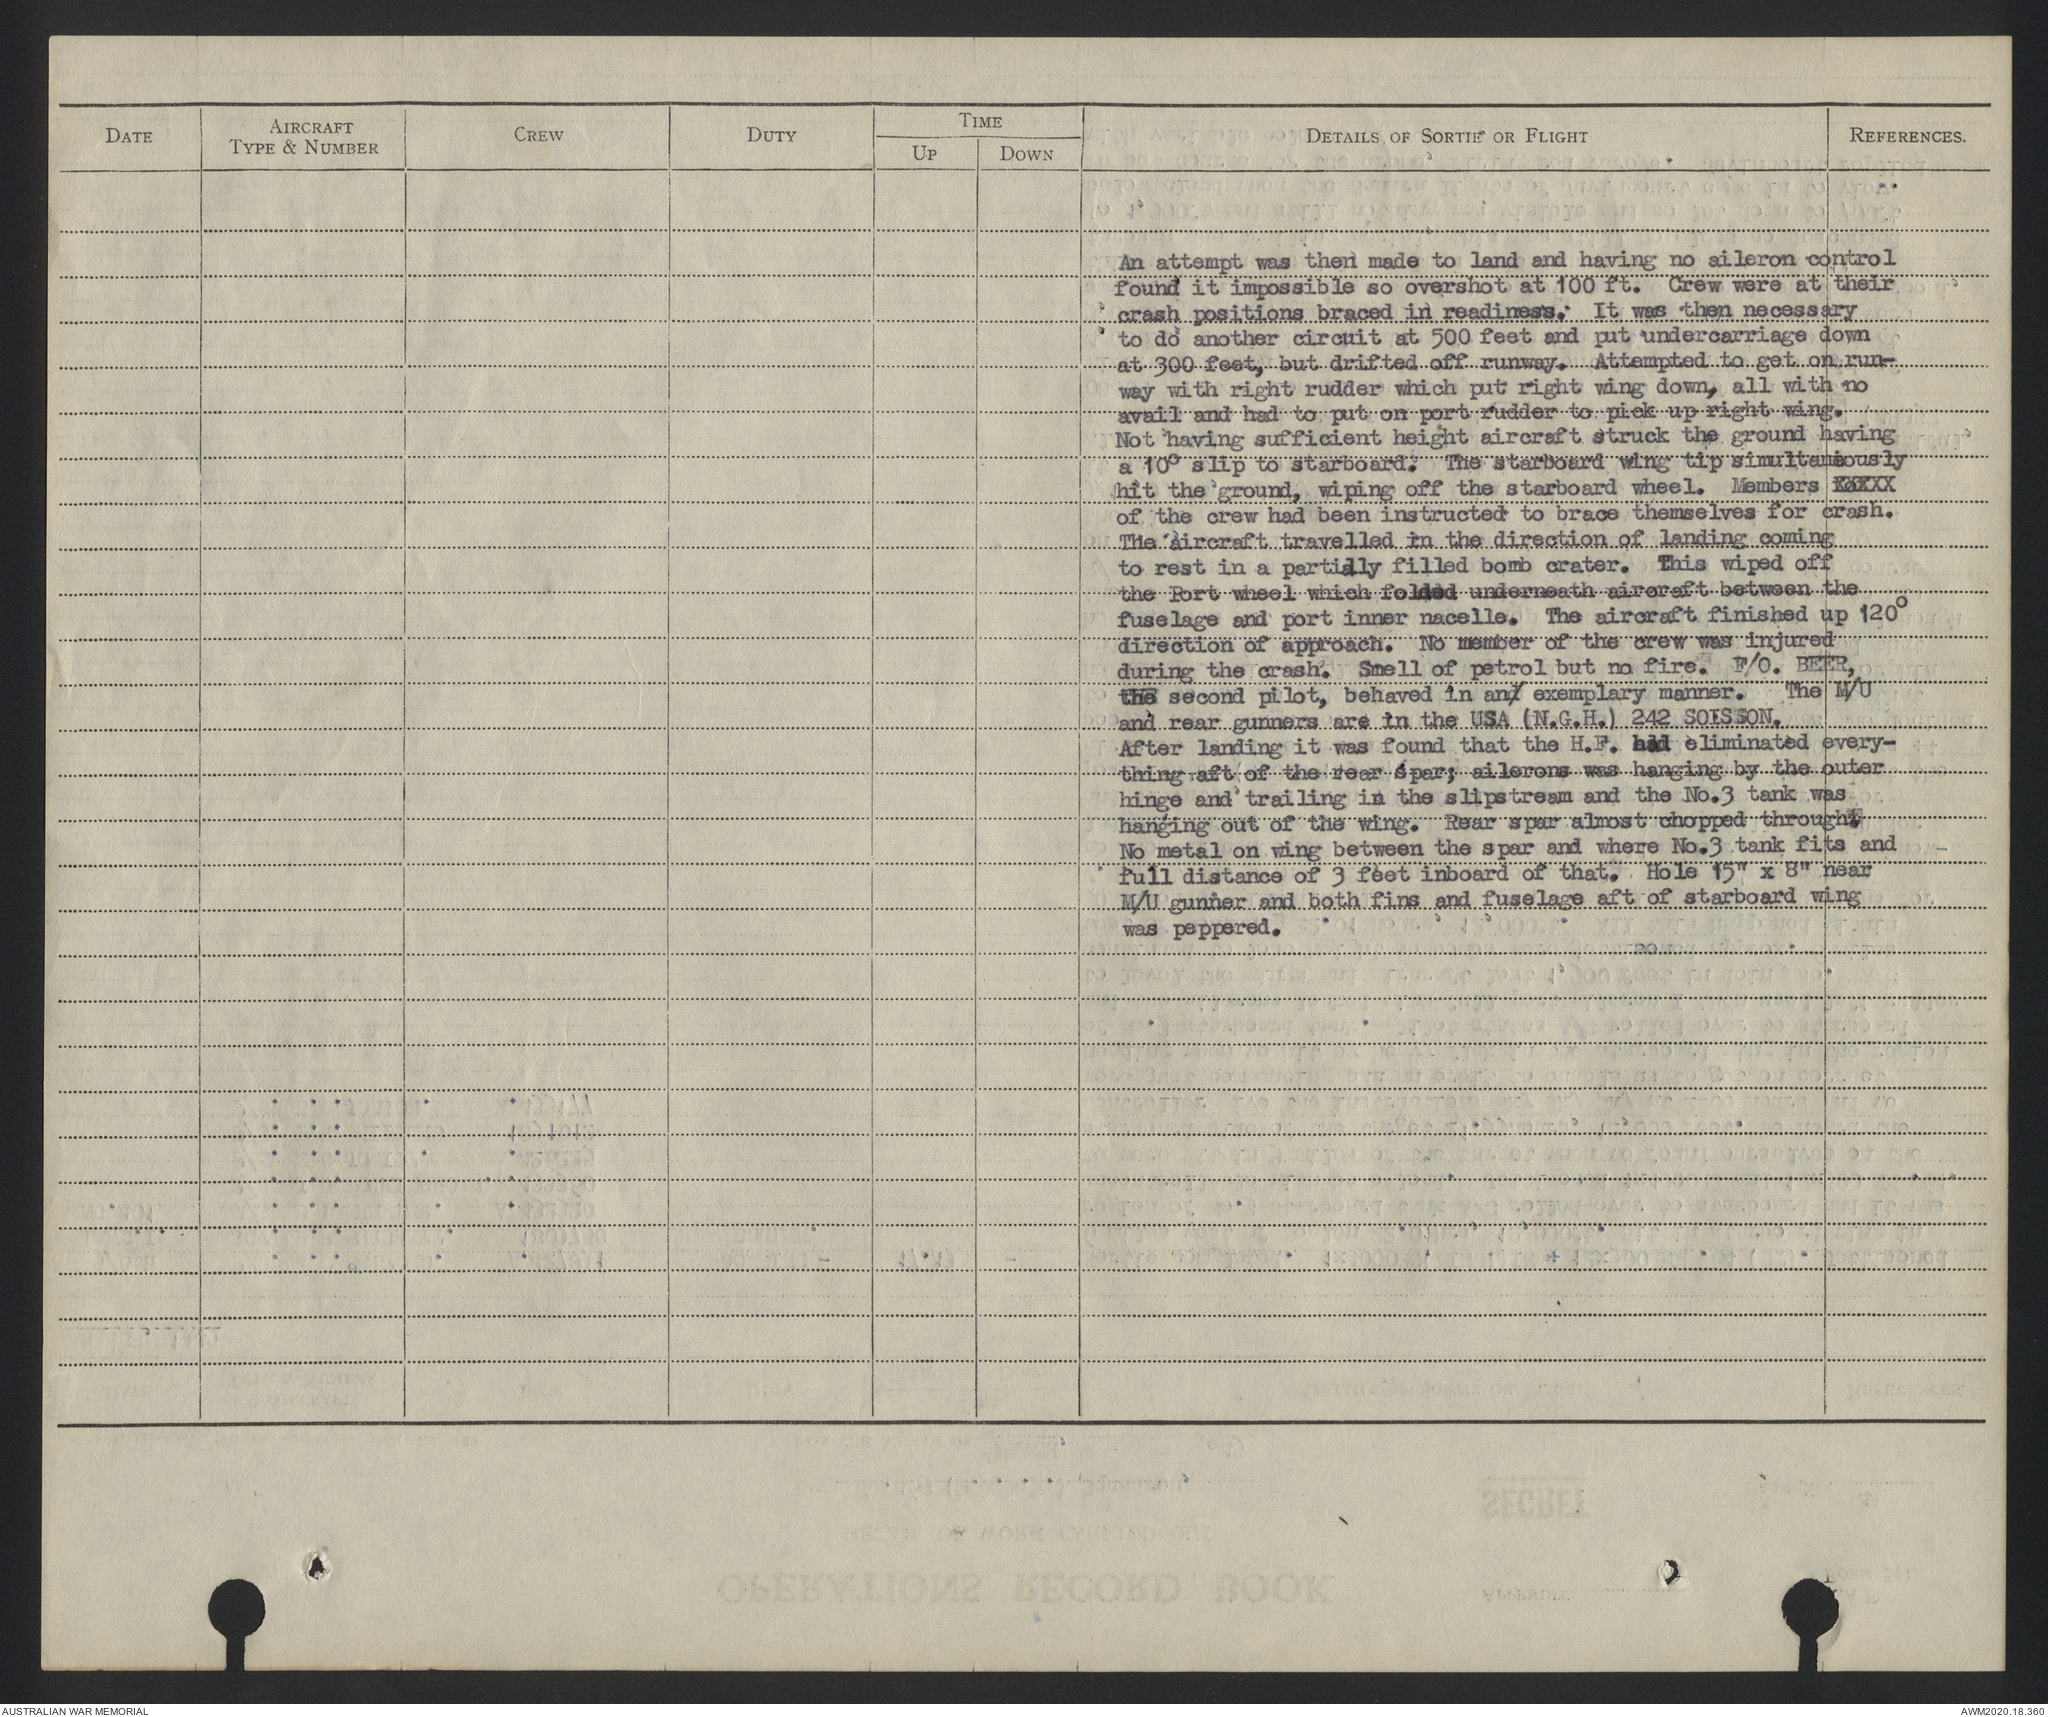 DATE
AIRCRAFT
TYPE & NUMBER
CREW
DUTY
TIME
UP
DOWN
DETAILS OF SORTIE OR FLIGHT
REFERENCES.
An attempt was then made to land and having no aileron control
found it impossible so overshot at 100 ft. Crew were at their
crash positions braced in readiness. It was then necessary
to do another circuit at 500 feet and put undercarriage down
at 300 feet, but drifted off runway. Attempted to get on run-
way with right rudder which put right wing down, all with no
avail and had to put on port rudder to pick up right wing.
Not having sufficient height aircraft struck the ground having
a 10° slip to starboard. The starboard wing tip simultaneously
hit the ground, wiping off the starboard wheel. Members
of the crew had been instructed to brace themselves for crash.
The aircraft travelled in the direction of landing coming
to rest in a partially filled bomb crater. This wiped off
the Port wheel which folded underneath aircraft between the
fuselage and port inner nacelle. The aircraft finished up 120°
direction of approach. No member of the crew was injured
during the crash. Smell of petrol but no fire. F/O. BEER,
the second pilot, behaved in an exemplary manner. The M/U
and rear gunners are in the USA (N.G.H.) 242 SOISSON.
After landing it was found that the H.F. had eliminated every-
thing aft of the rear spar; ailerons was hanging by the outer
hinge and trailing in the slipstream and the No.3 tank was
hanging out of the wing. Rear spar almost chopped through.
No metal on wing between the spar and where No.3 tank fits and
full distance of 3 feet inboard of that. Hole 15" x 8" near
M/U gunner and both fins and fuselage aft of starboard wing
was peppered.
AUSTRALIAN WAR MEMORIAL
AWM2020.18.360